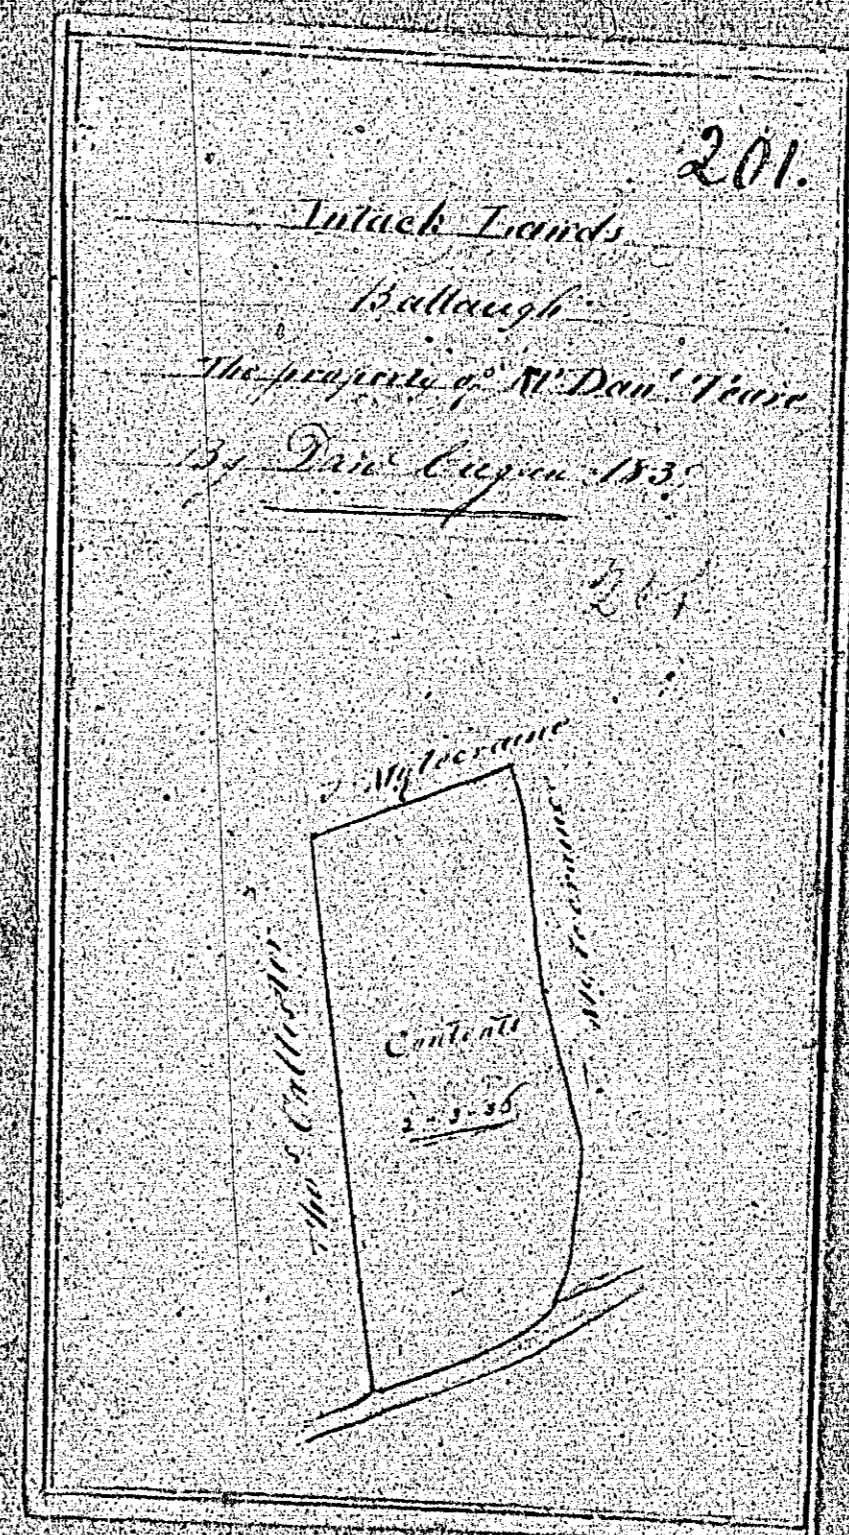 201.
Intack Lands
Ballaugh
The property of Mr Danl Teare
By Danl Cugen 183
201
J Mylecraine
Mylecraine
Thos Callister
Contents
2 - 3 - 35